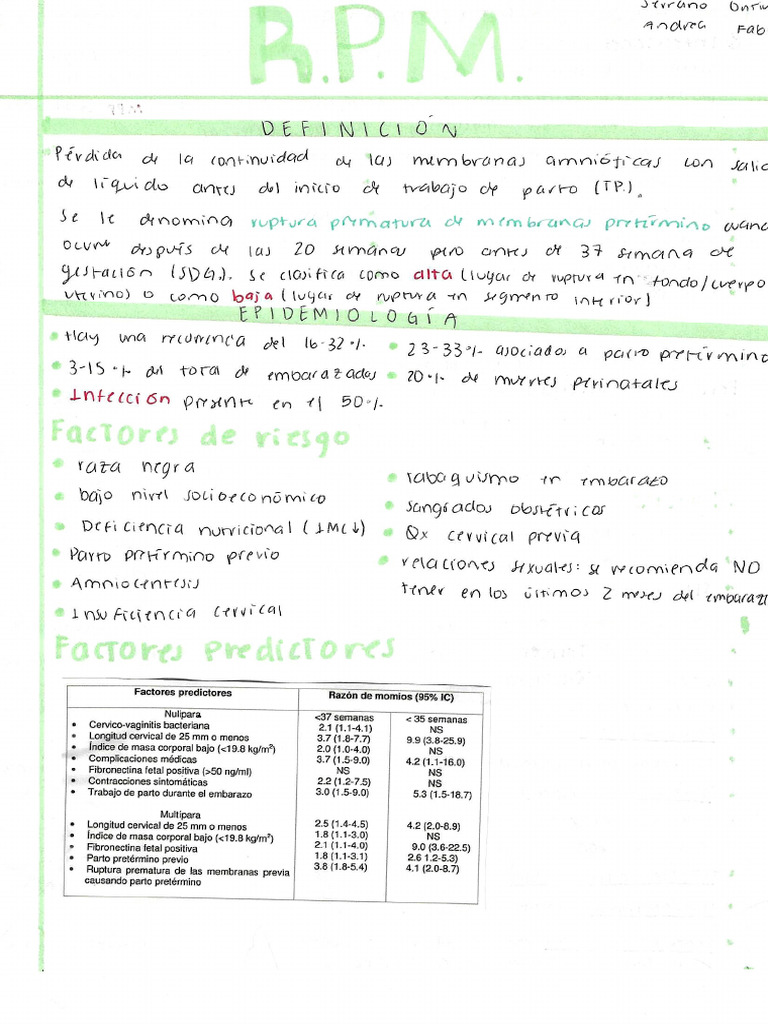 Serrano
Andrea Fab
R.P.M.
DEFINICIÓN
Pérdida de la continuidad de las membranas amnióticas con salid
de líquido antes del inicio de trabajo de parto (TP.).
Se le denomina ruptura prematura de membranas pretérmino cuand
ocurre después de las 20 semanas pero antes de 37 semana de
gestación (SDG). Se clasifica como alta (lugar de ruptura en fondo/cuerpo
uterino) o como baja (lugar de ruptura en segmento inferior)
EPIDEMIOLOGÍA
• Hay una recurrencia del 16-32% • 23-33% asociados a parto pretérmino
• 3-15% del total de embarazadas • 20% de muertes perinatales
• Infección presente en el 50%
Factores de riesgo
• raza negra
• bajo nivel socioeconómico
• Deficiencia nutricional (IMC↓)
• Parto pretérmino previo
• Amniocentesis
• Insuficiencia cervical
• Tabaquismo en embarazo
• Sangrados obstétricos
• Qx cervical previa
• relaciones sexuales: se recomienda NO
tener en los últimos 2 meses del embarazo
Factores predictores
Factores predictores Razón de momios (95% IC)
Nulipara <37 semanas < 35 semanas
• Cervico-vaginitis bacteriana 2.1 (1.1-4.1) NS
• Longitud cervical de 25 mm o menos 3.7 (1.8-7.7) 9.9 (3.8-25.9)
• Índice de masa corporal bajo (<19.8 kg/m²) 2.0 (1.0-4.0) NS
• Complicaciones médicas 3.7 (1.5-9.0) 4.2 (1.1-16.0)
• Fibronectina fetal positiva (>50 ng/ml) NS NS
• Contracciones sintomáticas 2.2 (1.2-7.5) NS
• Trabajo de parto durante el embarazo 3.0 (1.5-9.0) 5.3 (1.5-18.7)
Multipara
• Longitud cervical de 25 mm o menos 2.5 (1.4-4.5) 4.2 (2.0-8.9)
• Índice de masa corporal bajo (<19.8 kg/m²) 1.8 (1.1-3.0) NS
• Fibronectina fetal positiva 2.1 (1.1-4.0) 9.0 (3.6-22.5)
• Parto pretérmino previo 1.8 (1.1-3.1) 2.6 1.2-5.3)
• Ruptura prematura de las membranas previa 3.8 (1.8-5.4) 4.1 (2.0-8.7)
causando parto pretérmino